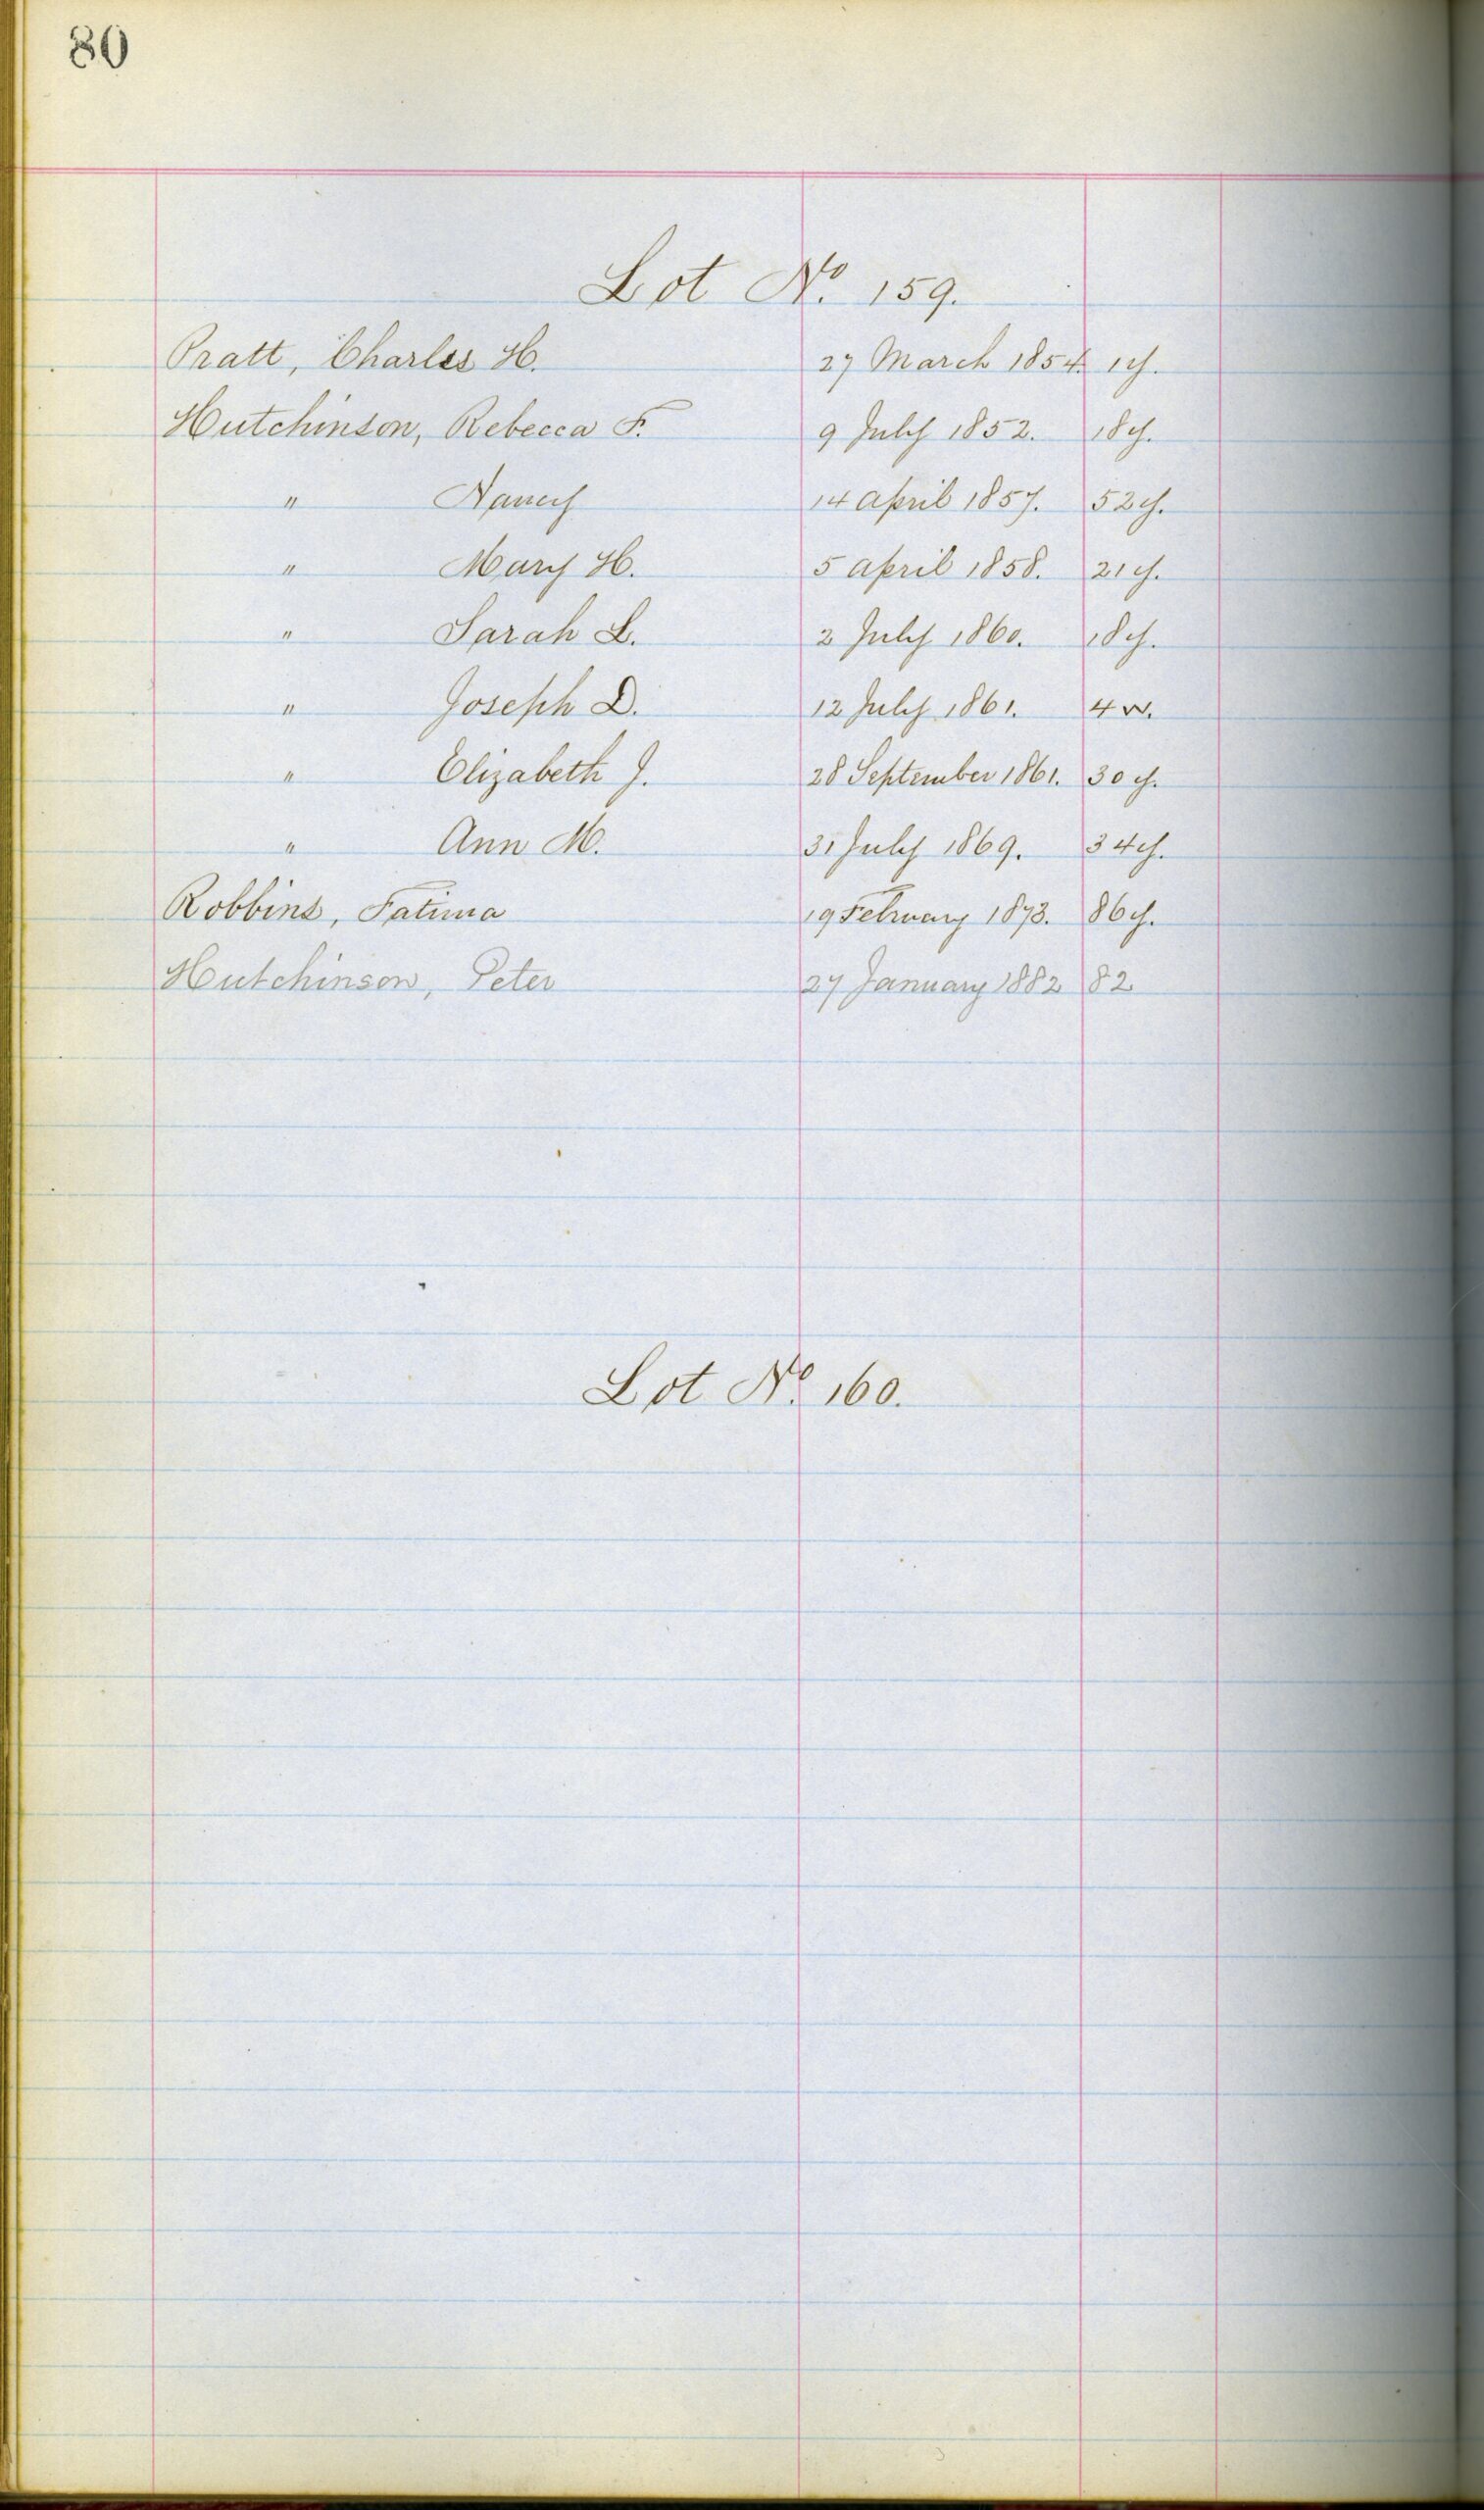 80
Lot No. 159.
Pratt, Charles H. 27 March 1854. 1y.
Hutchinson, Rebecca F. 9 July 1852. 18y.
" Nancy 14 April 1857. 52y.
" Mary H. 5 April 1858. 21y.
" Sarah L. 2 July 1860. 18y.
" Joseph D. 12 July 1861. 4w.
" Elizabeth J. 28 September 1861. 30y.
" Ann M. 31 July 1869. 34y.
Robbins, Fatima 19 February 1873. 86y.
Hutchinson, Peter 27 January 1882 82
Lot No. 160.